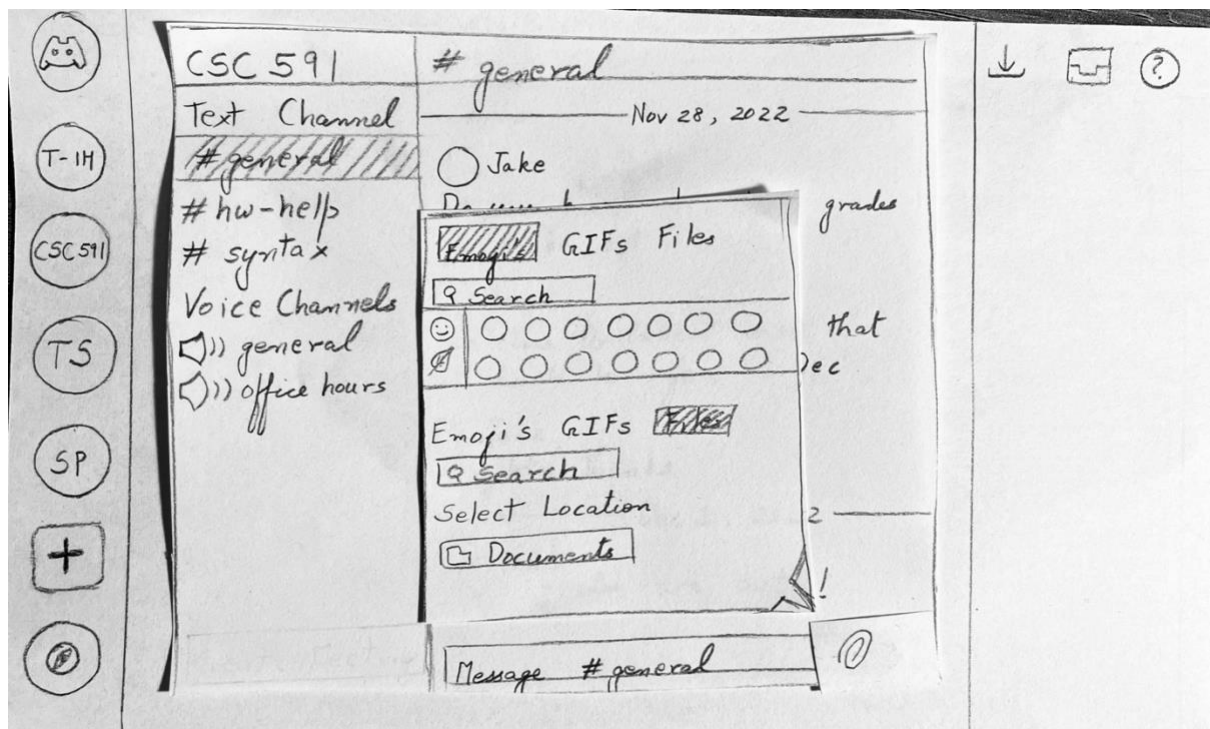 T-1H
CSC 591
TS
SP
+
CSC 591
Text Channel
# general
# hw-help
# syntax
Voice Channels
general
office hours
# general
Nov 28, 2022
Jake
grades
that
2
!
Emoji's GIFs Files
Search
Emoji's GIFs Files
Search
Select Location
Documents
Message # general
?